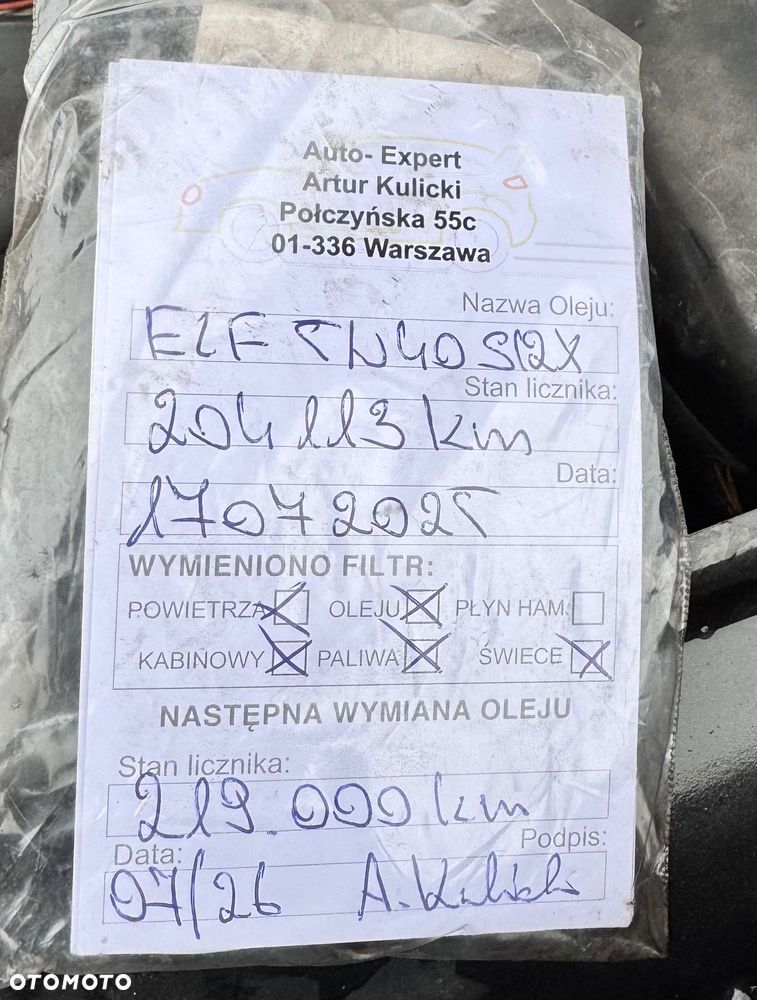 Auto- Expert
Artur Kulicki
Połczyńska 55c
01-336 Warszawa
Nazwa Oleju:
ELF 5W40 SRX
Stan licznika:
204113 km
Data:
17072025
WYMIENIONO FILTR:
POWIETRZA OLEJU PŁYN HAM.
KABINOWY PALIWA ŚWIECE
NASTĘPNA WYMIANA OLEJU
Stan licznika:
219.000 km
Podpis:
Data:
07/26 A. Kulicki
OTOMOTO